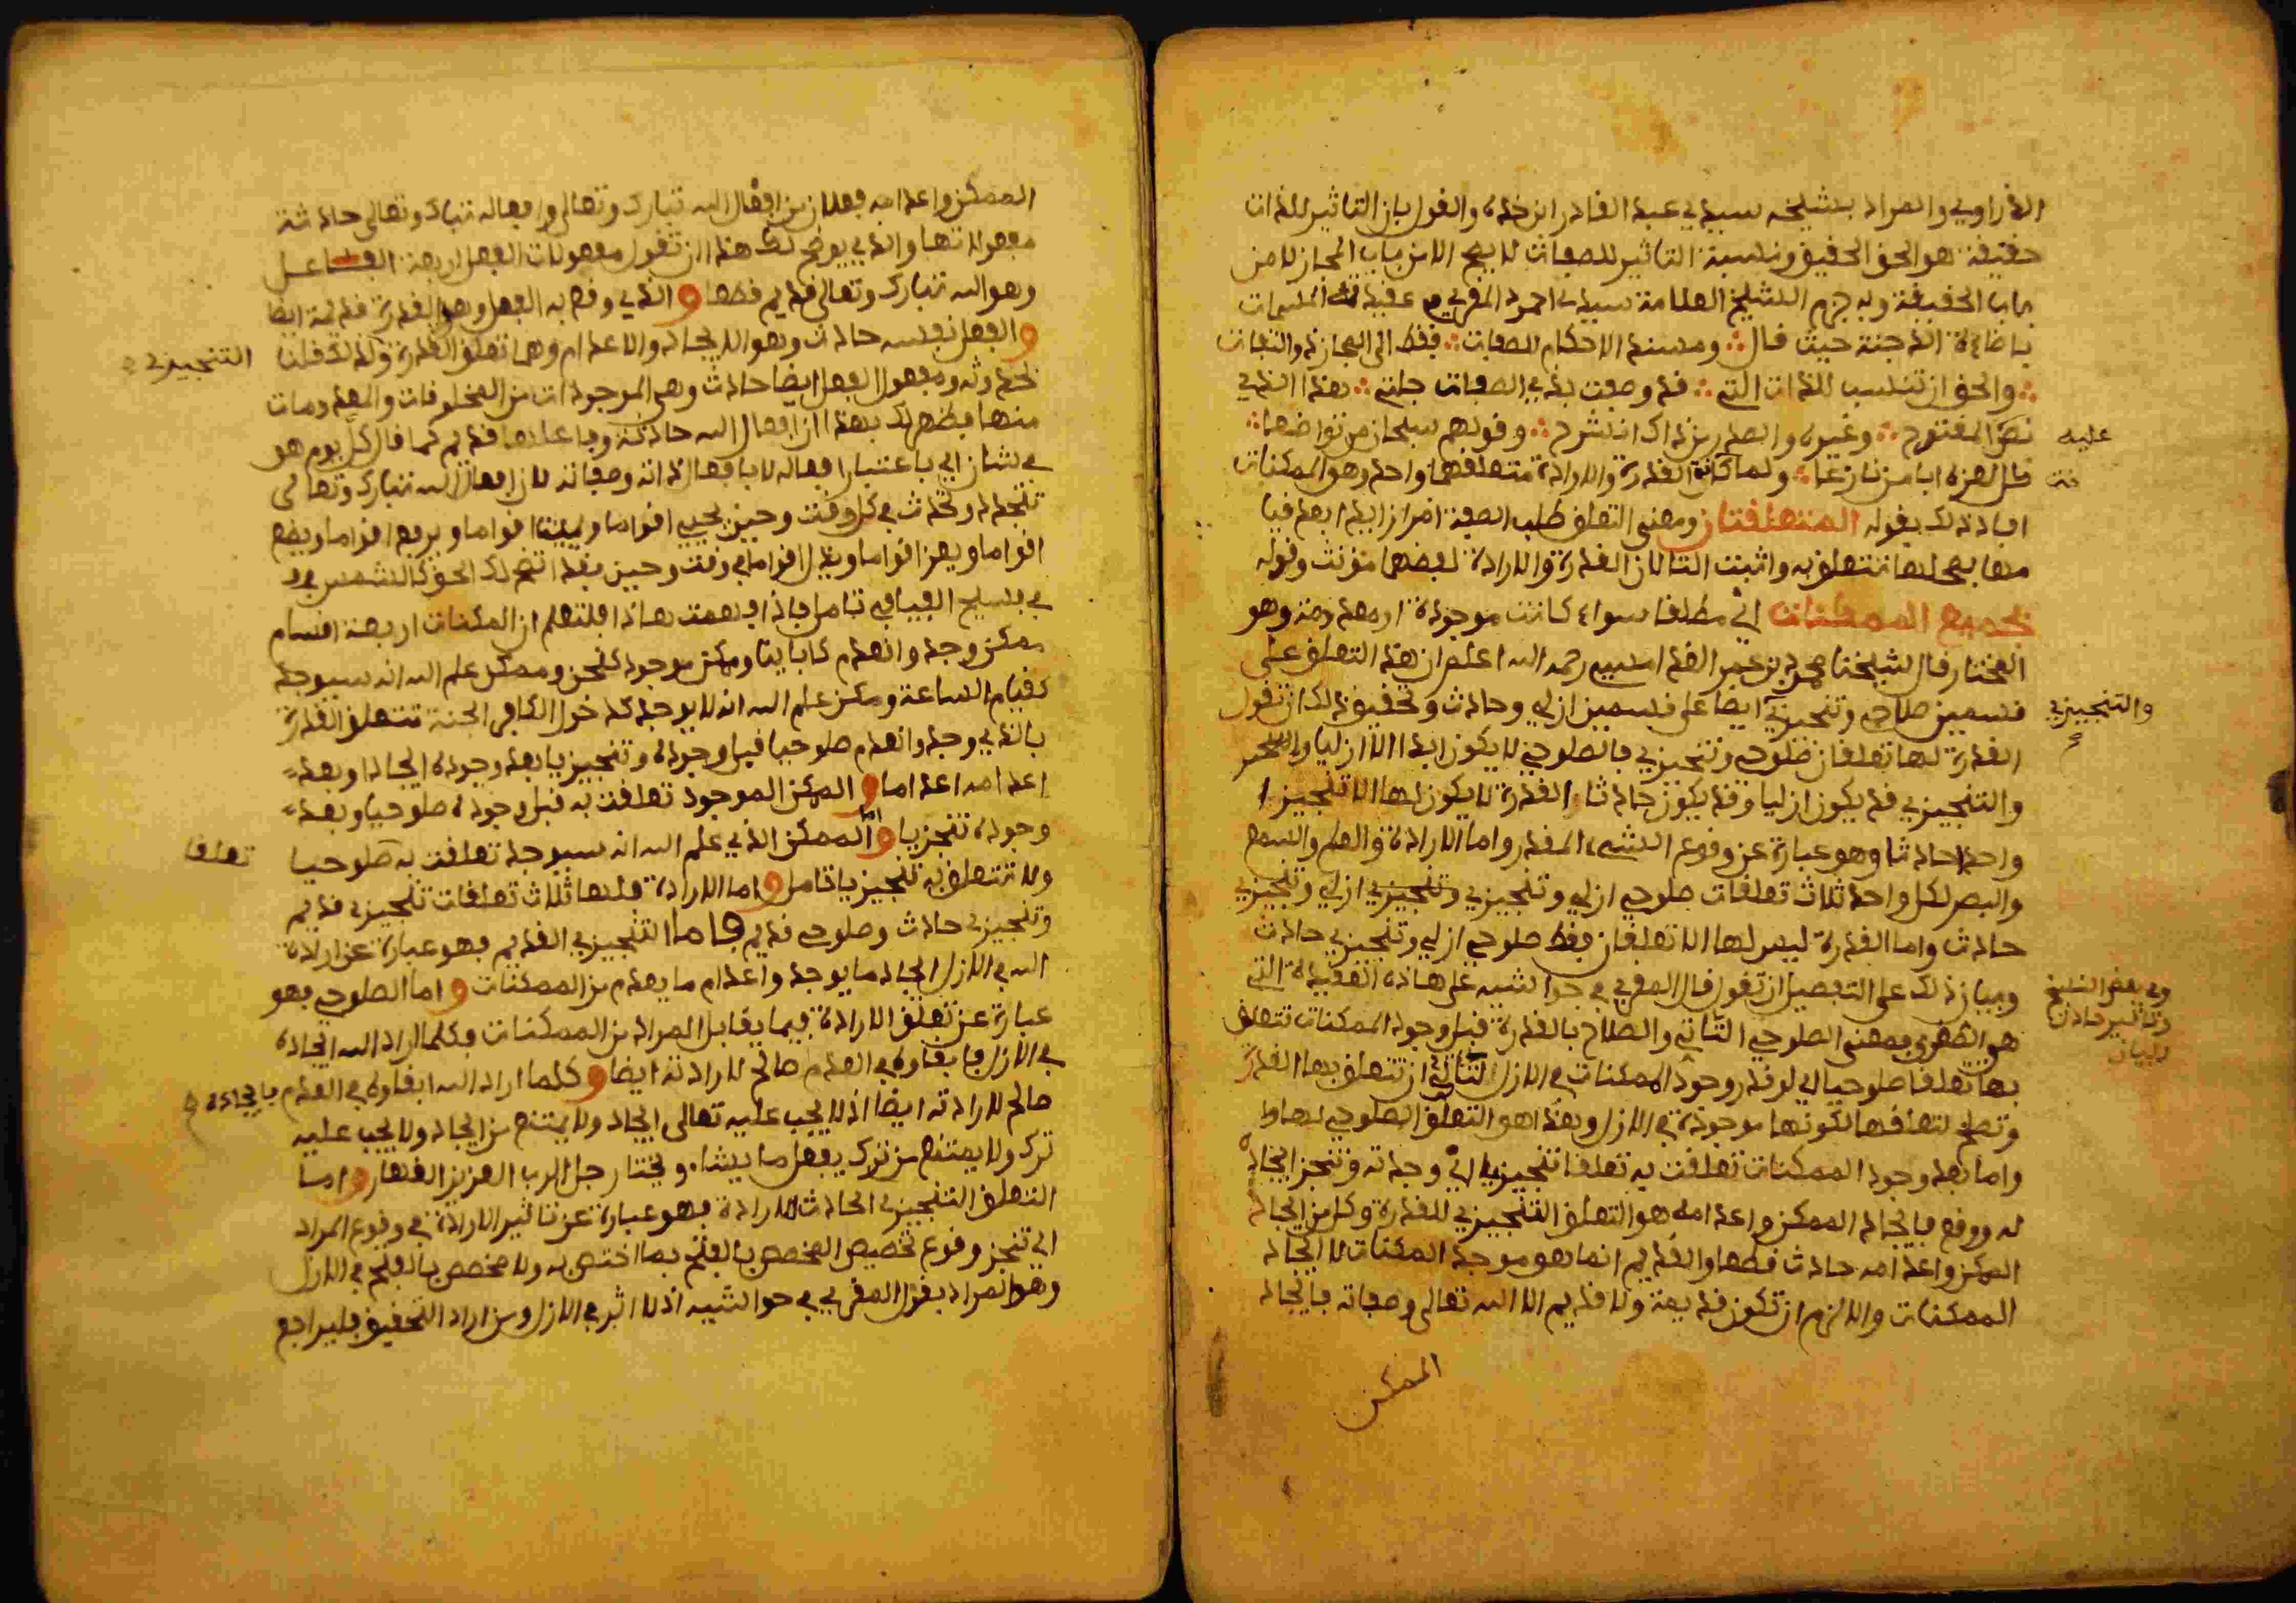 الدراوي والمراد بشيخه سيدي عبد القادر ابن خده والقول بان التاثير للذات
حقيقة هو الحق الحقيق ونسبة التاثير للصفات لا يصح الا من باب المجاز لا من
باب الحقيقة وبه جزم الشيخ العلامة سيدي احمد المقري في عقيدته المسمات
باضاءة الدجنة حيث قال ومسند الاحكام للصفات فقط الى المجاز ذو التفات
والحق ان تنسب للذات التي قد وصفت بذي الصفات جلت هذا الذي
نص المفترح وغيره والصدر من ذاك انشرح وقولهم سبحان من تواضعا
كل لعزه ابا من نازعا ولما كانت القدرة والارادة متعلقهما واحد وهو الممكنات
عليه
افاد ذلك بقوله المتعلقتان ومعنى التعلق طلب الصفة امرا زايدا بعد قيا
مها بمحلها تتعلق به واثبت التا لان القدرة والارادة لفظهما مؤنث وقوله
بجميع الممكنات اي مطلقا سواء كانت موجودة او معدومة وهو
المختار قال شيخنا محمد بن عمر الغدامسي رحمه الله اعلم ان هذا التعلق على
قسمين صلاحي وتنجيزي ايضا على قسمين ازلي وحادث وتحقيق ذلك ان تقول
والتنجيزي
القدرة لها تعلقان صلوحي وتنجيزي فالصلوحي لا يكون ابدا الا ازليا
والتنجيزي قد يكون ازليا وقد يكون حادثا القدرة لا يكون لها الا تنجيزا
واحدا حادثا وهو عبارة عن وقوع الشيء المقدر واما الارادة والعلم والسمع
والبصر لكل واحد ثلاث تعلقات صلوحي ازلي وتنجيزي وتنجيزي ازلي وتنجيزي
حادث واما القدرة ليس لها الا تعلقان فقط صلوحي ازلي وتنجيزي حادث
وبيان ذلك على التفصيل ان تقول قال المقري في حواشيه على هاذه العقيدة التي
وفي بعض النسخ
هو الصغرى فمعنى الصلوحي الثاني والصلاح بالقدرة قبل وجود الممكنات تتعلق
بها تعلقا صلوحيا اي لو قدر وجود الممكنات في الازل لتأتى ان تتعلق بها القدرة
وتصلح لتعلقها لكونها موجودة في الازل وهذا هو التعلق الصلوحي لها
واما بعد وجود الممكنات تعلقت به تعلقا تنجيزيا اي وجد ته وتنجز ايجاده
له ووقع فايجاد الممكن واعدامه هو التعلق التنجيزي للقدرة وكل من ايجاد
الممكن واعدامه حادث قطعا والقديم انما هو موجد الممكنات لا ايجاد
الممكنات والا لزم ان تكون قديمة ولا قديم الا الله تعالى وصفاته فايجاد
الممكن
الممكن واعدامه فعلان من افعال الله تبارك وتعالى وافعاله تبارك وتعالى حادثة
مفعولاتها والذي يوضح لك هذا ان تقول مفعولات الفعل اربعة الفاعل
وهو الله تبارك وتعالى قديم قطعا والذي وقع به الفعل وهو القدرة قديمة ايضا
والفعل نفسه حادث وهو الايجاد والاعدام وهما تعلق القدرة ولذلك قلنا
التنجيزي
بحدوثه ومفعول الفعل ايضا حادث وهي الموجودات من المخلوقات والمعدومات
منها فظهر لك بهذا ان افعال الله حادثة وفاعلها قديم كما قال كل يوم هو
في شان اي باعتبار افعاله لا بافعال ذاته وصفاته لان افعال الله تبارك وتعالى
تتجدد وتحدث في كل وقت وحين يحيي اقواما ويميت اقواما ويرفع اقواما ويضع
اقواما ويعز اقواما ويذل اقواما في وقت وحين فقد اتضح لك الحق كالشمس
في فسيح الفيافي تامل فاذا فهمت هاذا فلتعلم ان الممكنات اربعة اقسام
ممكن وجد وانعدم كابائنا وممكن موجود كنحن وممكن علم الله انه سيوجد
كقيام الساعة وممكن علم الله انه لا يوجد كدخول الكافر الجنة تتعلق القدرة
بالذي وجد وانعدم صلوحيا قبل وجوده وتنجيزيا بعد وجوده ايجادا وبعد
اعدامه اعداما والممكن الموجود تعلقت به قبل وجوده صلوحيا وبعد
وجوده تنجزيا واما الممكن الذي علم الله انه سيوجد تعلقت به صلوحيا
تعلقا
ولا تتعلق به تنجيزيا تامل واما الارادة فلها ثلاث تعلقات تنجيزي قديم
وتنجيزي حادث وصلوحي قديم فاما التنجيزي القديم فهو عبارة عن ارادة
الله في الازل ايجاد ما يوجد واعدام ما يعدم من الممكنات واما الصلوحي فهو
عبارة عن تعلق الارادة فيما يقابل المراد من الممكنات فكلما اراد الله ايجاده
في الازل فابقاوه في العدم صالح لارادته ايضا وكلما اراد الله ابقاوه في العدم فايجاده
صالح لارادته ايضا اذ لا يجب عليه تعالى ايجاد ولا يمتنع من ايجاد ولا يجب عليه
ترك ولا يمتنع من ترك يفعل ما يشاء ويختار جل الرب العزيز القهار واما
التعلق التنجيزي الحادث للارادة فهو عبارة عن تاثير الارادة في وقوع المراد
اي تنجز وقوع تخصيص المخصص بالفتح بما اختص به ولا مخصص بالفتح في الازل
وهو المراد بقول المقري في حواشيه اذ لا اثر في الازل ومن اراد التحقيق فليراجع